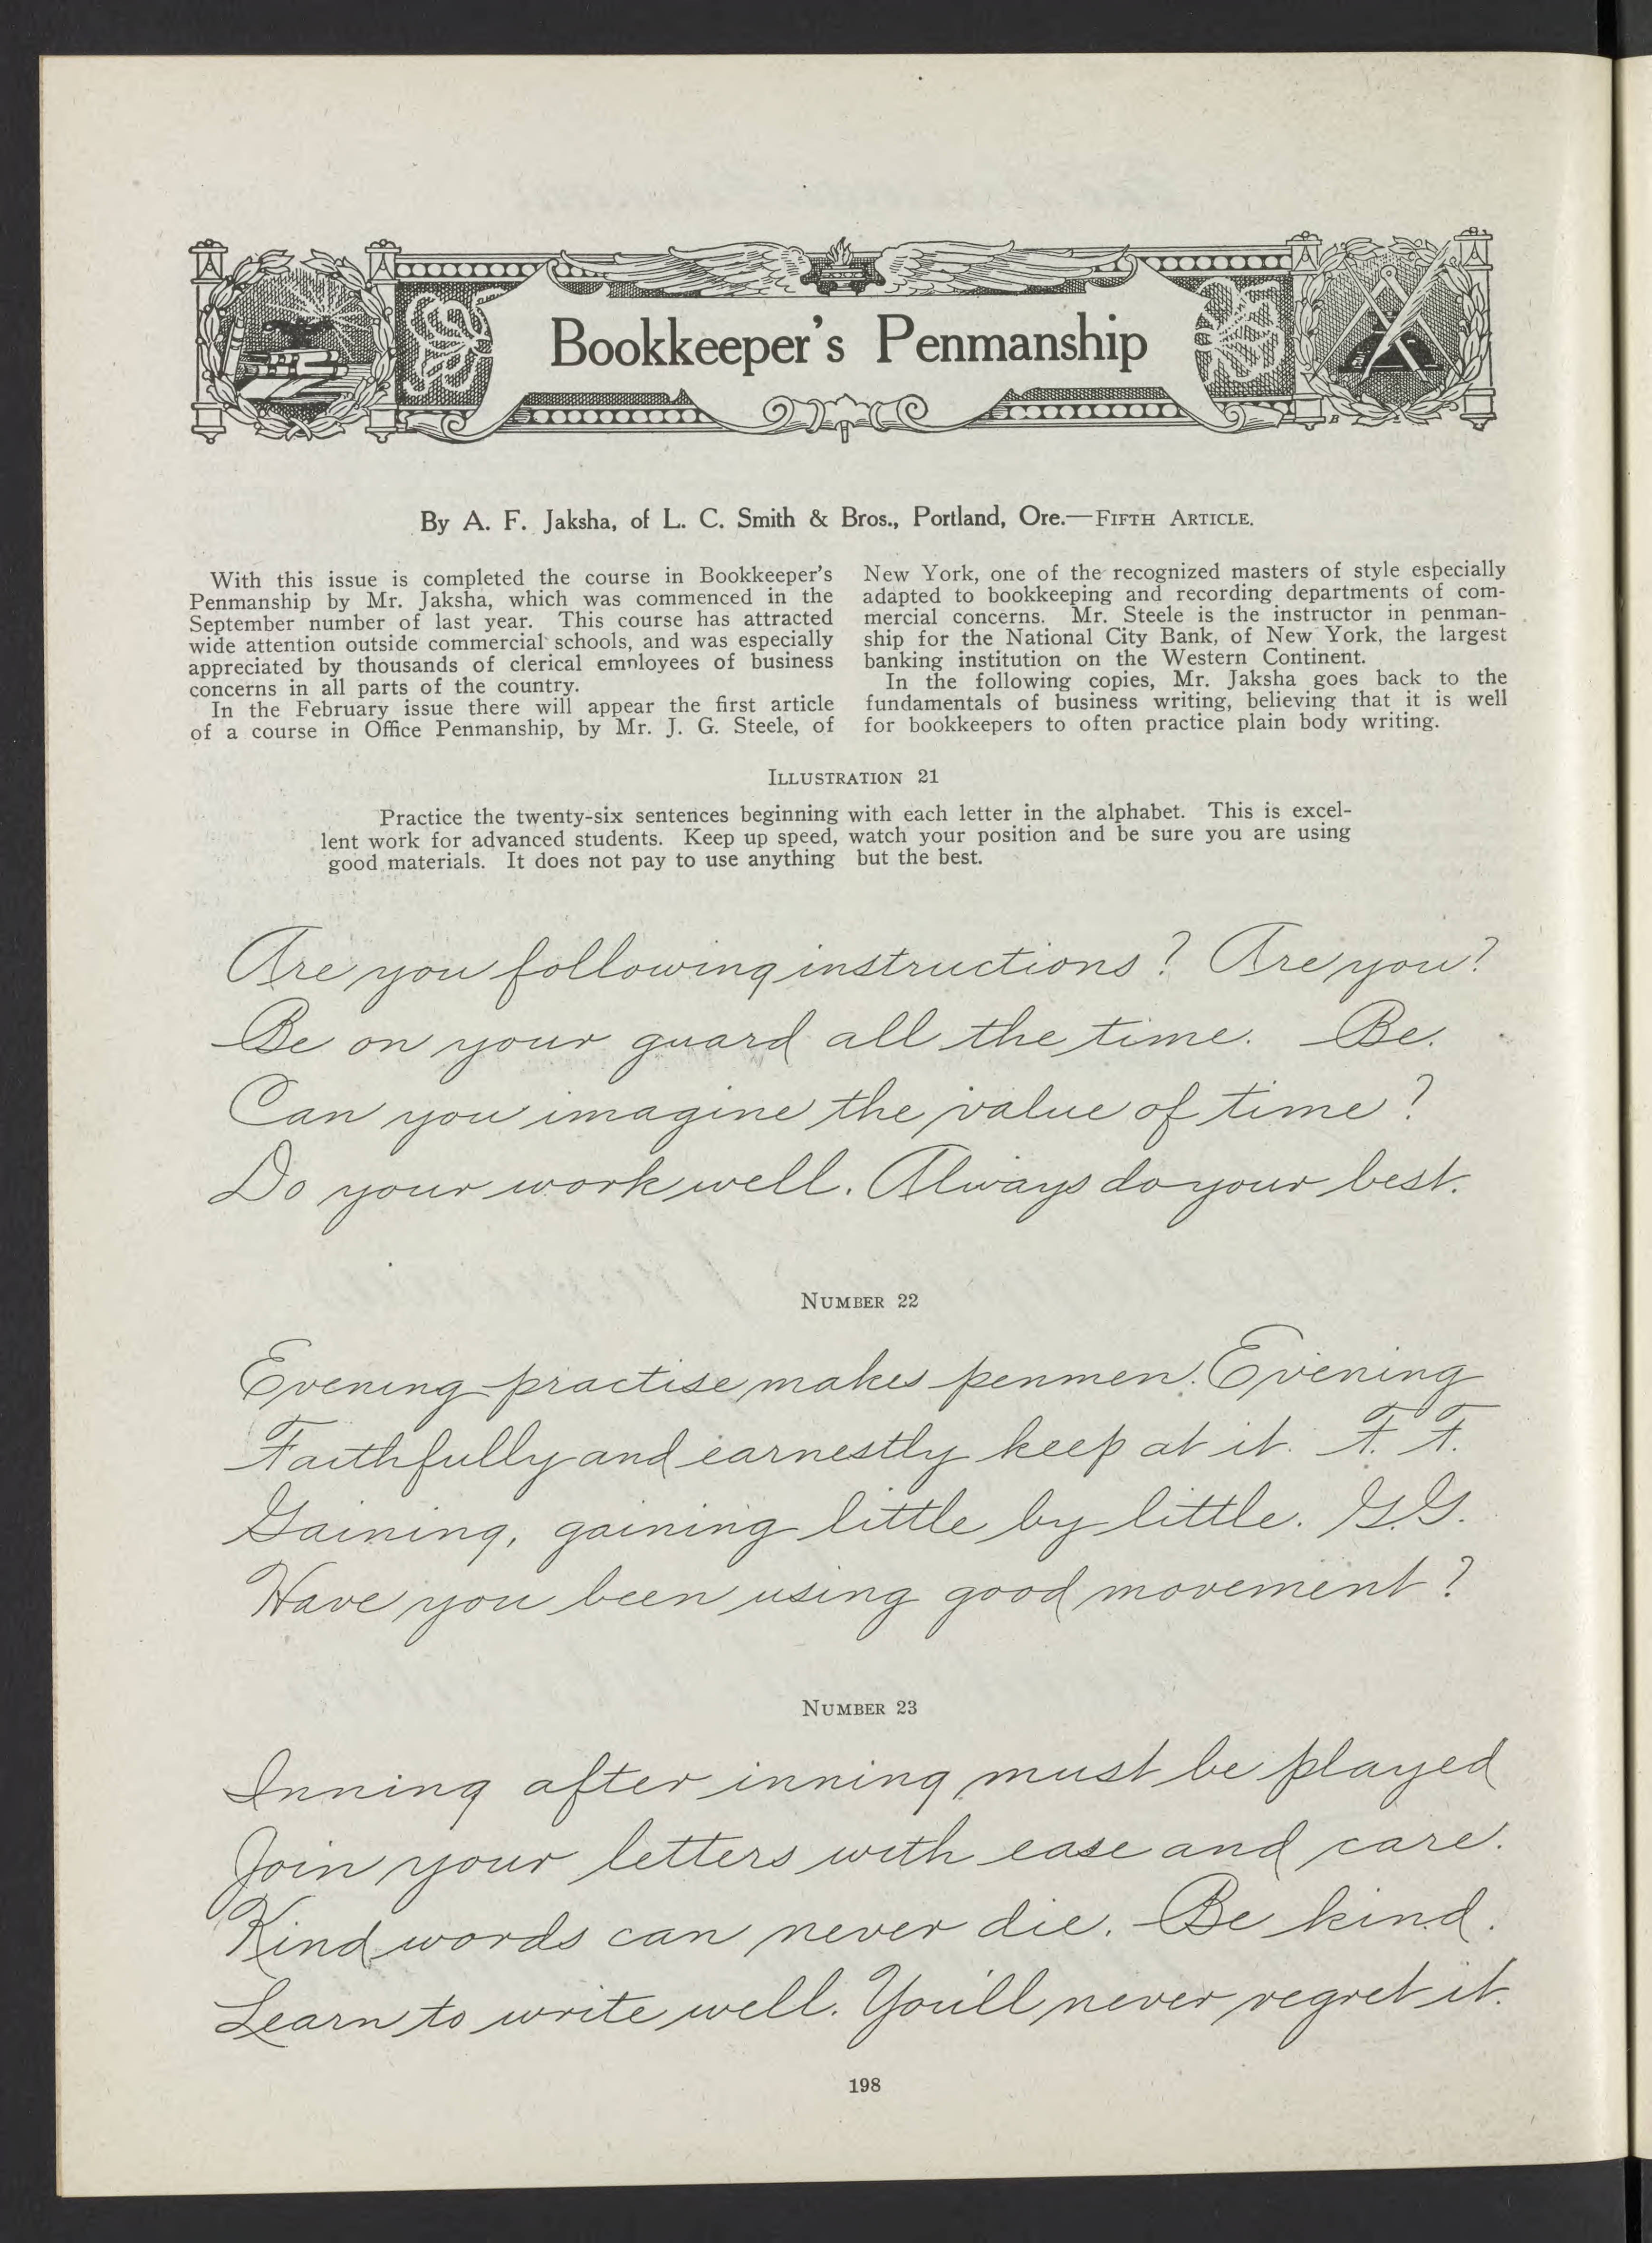 Bookkeeper's Penmanship
By A. F. Jaksha, of L. C. Smith & Bros., Portland, Ore.—FIFTH ARTICLE.
With this issue is completed the course in Bookkeeper's
Penmanship by Mr. Jaksha, which was commenced in the
September number of last year. This course has attracted
wide attention outside commercial schools, and was especially
appreciated by thousands of clerical employees of business
concerns in all parts of the country.
In the February issue there will appear the first article
of a course in Office Penmanship, by Mr. J. G. Steele, of
New York, one of the recognized masters of style especially
adapted to bookkeeping and recording departments of com-
mercial concerns. Mr. Steele is the instructor in penman-
ship for the National City Bank, of New York, the largest
banking institution on the Western Continent.
In the following copies, Mr. Jaksha goes back to the
fundamentals of business writing, believing that it is well
for bookkeepers to often practice plain body writing.
ILLUSTRATION 21
Practice the twenty-six sentences beginning with each letter in the alphabet. This is excel-
lent work for advanced students. Keep up speed, watch your position and be sure you are using
good materials. It does not pay to use anything but the best.
Are you following instructions? Are you?
Be on your guard all the time. Be.
Can you imagine the value of time?
Do your work well. Always do your best.
NUMBER 22
Evening practise makes penmen. Evening
Faithfully and earnestly keep at it. F. F.
Gaining, gaining little by little. G.G.
Have you been using good movement?
NUMBER 23
Inning after inning must be played
Join your letters with ease and care.
Kind words can never die. Be kind.
Learn to write well. You'll never regret it.
198